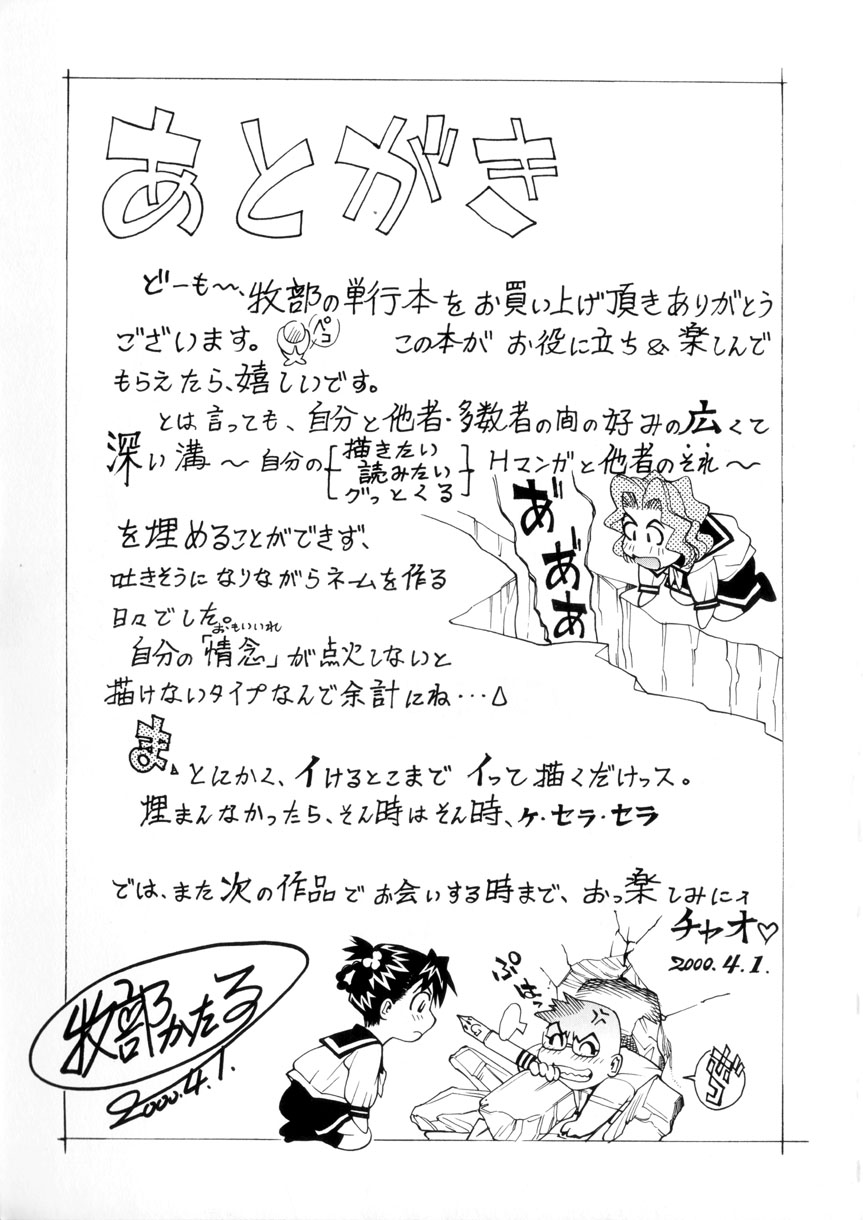 あとがき
どーも〜、牧部の単行本をお買い上げ頂きありがとう
ございます。ペコ この本が お役に立ち & 楽しんで
もらえたら、嬉しいです。
とは言っても、自分と他者・多数者の間の好みの広くて
深い溝 〜 自分の
描きたい
読みたい
グっとくる
Hマンガと他者のそれ〜
を埋めることができず、
吐きそうになりながらネームを作る
日々でした。
おもいいれ
自分の「情念」が点火しないと
描けないタイプなんで余計にね・・・
あ゛あ゛あ゛
ま、とにかく、イけるとこまで イって描くだけっス。
埋まんなかったら、そん時はそん時、ケ・セラ・セラ
では、また次の作品で お会いする時まで、おっ楽しみにィ
チャオ♡
2000.4.1.
ぷはー
牧部かたる
2000.4.1.